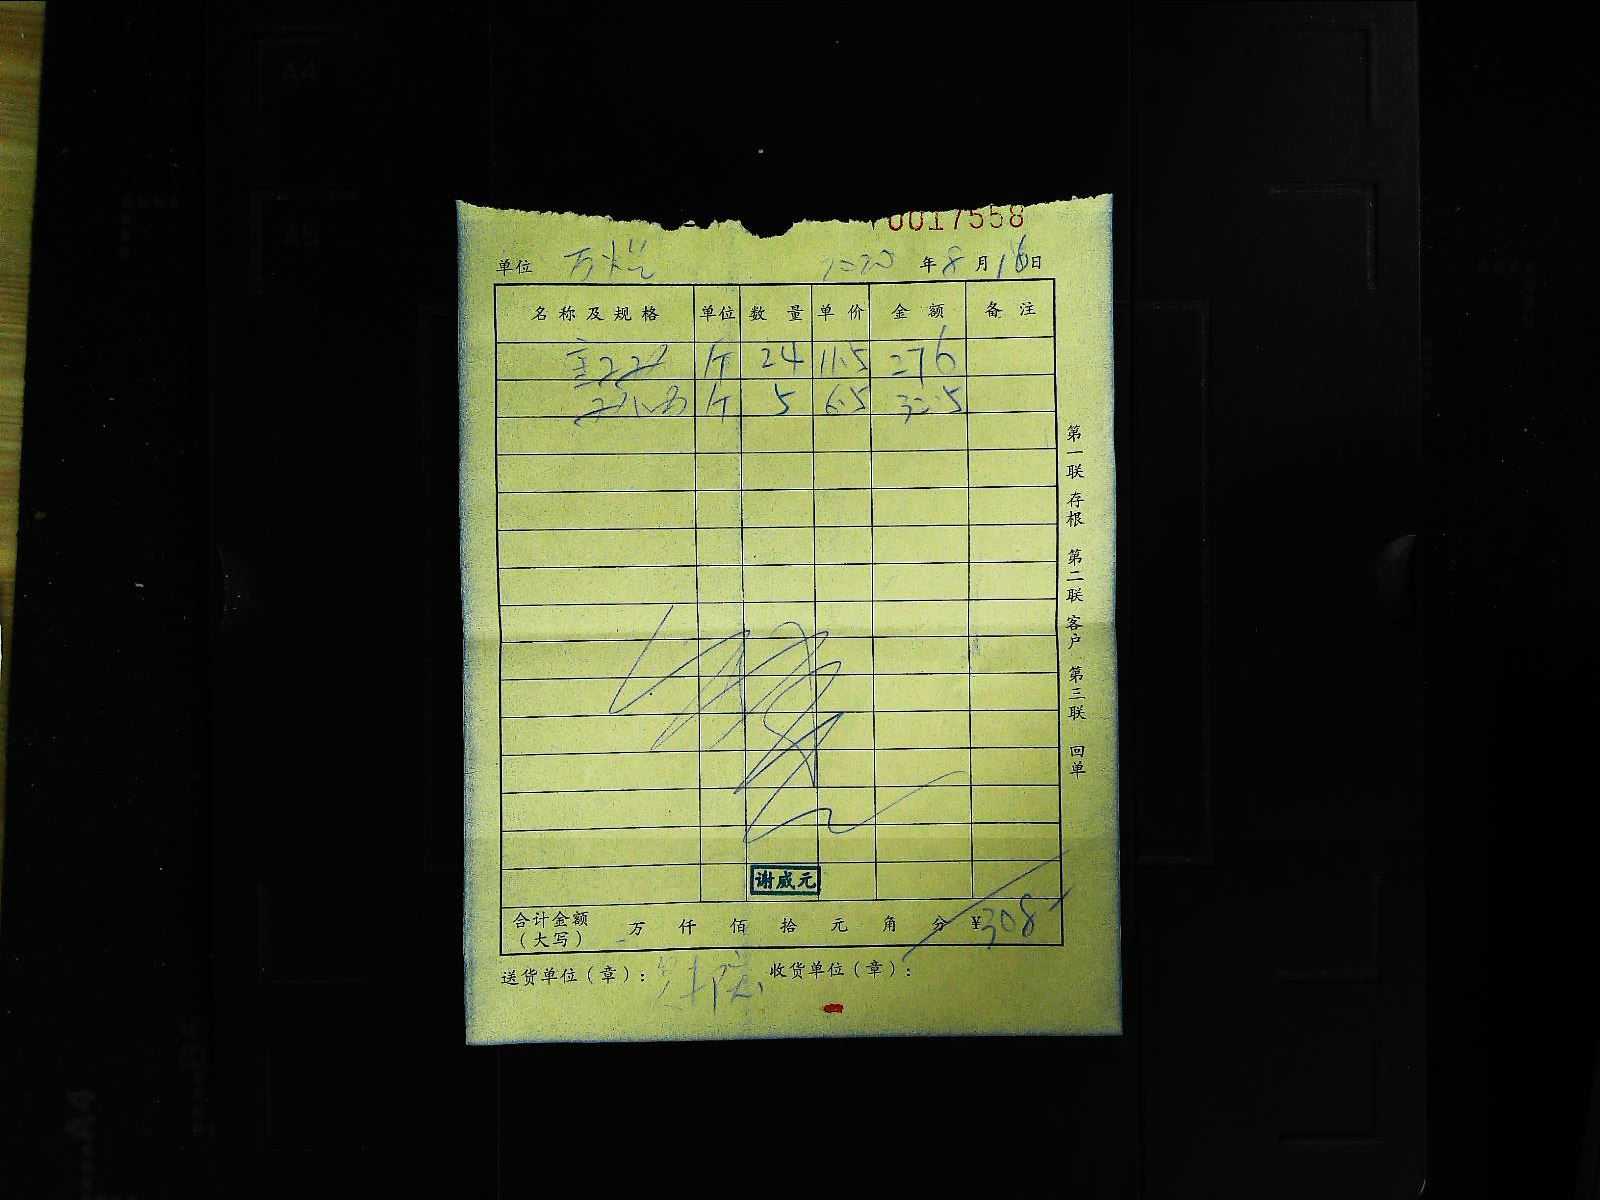 0017558
单位 2020 年 8 月 16 日
名称及规格 单位 数量 单价 金额 备注
斤 24 11.5 276
斤 5 6.5 32.5
第一联 存根 第二联 客户 第三联 回单
谢威元
合计金额(大写) 万 仟 佰 拾 元 角 分 ¥308
送货单位(章): 收货单位(章):